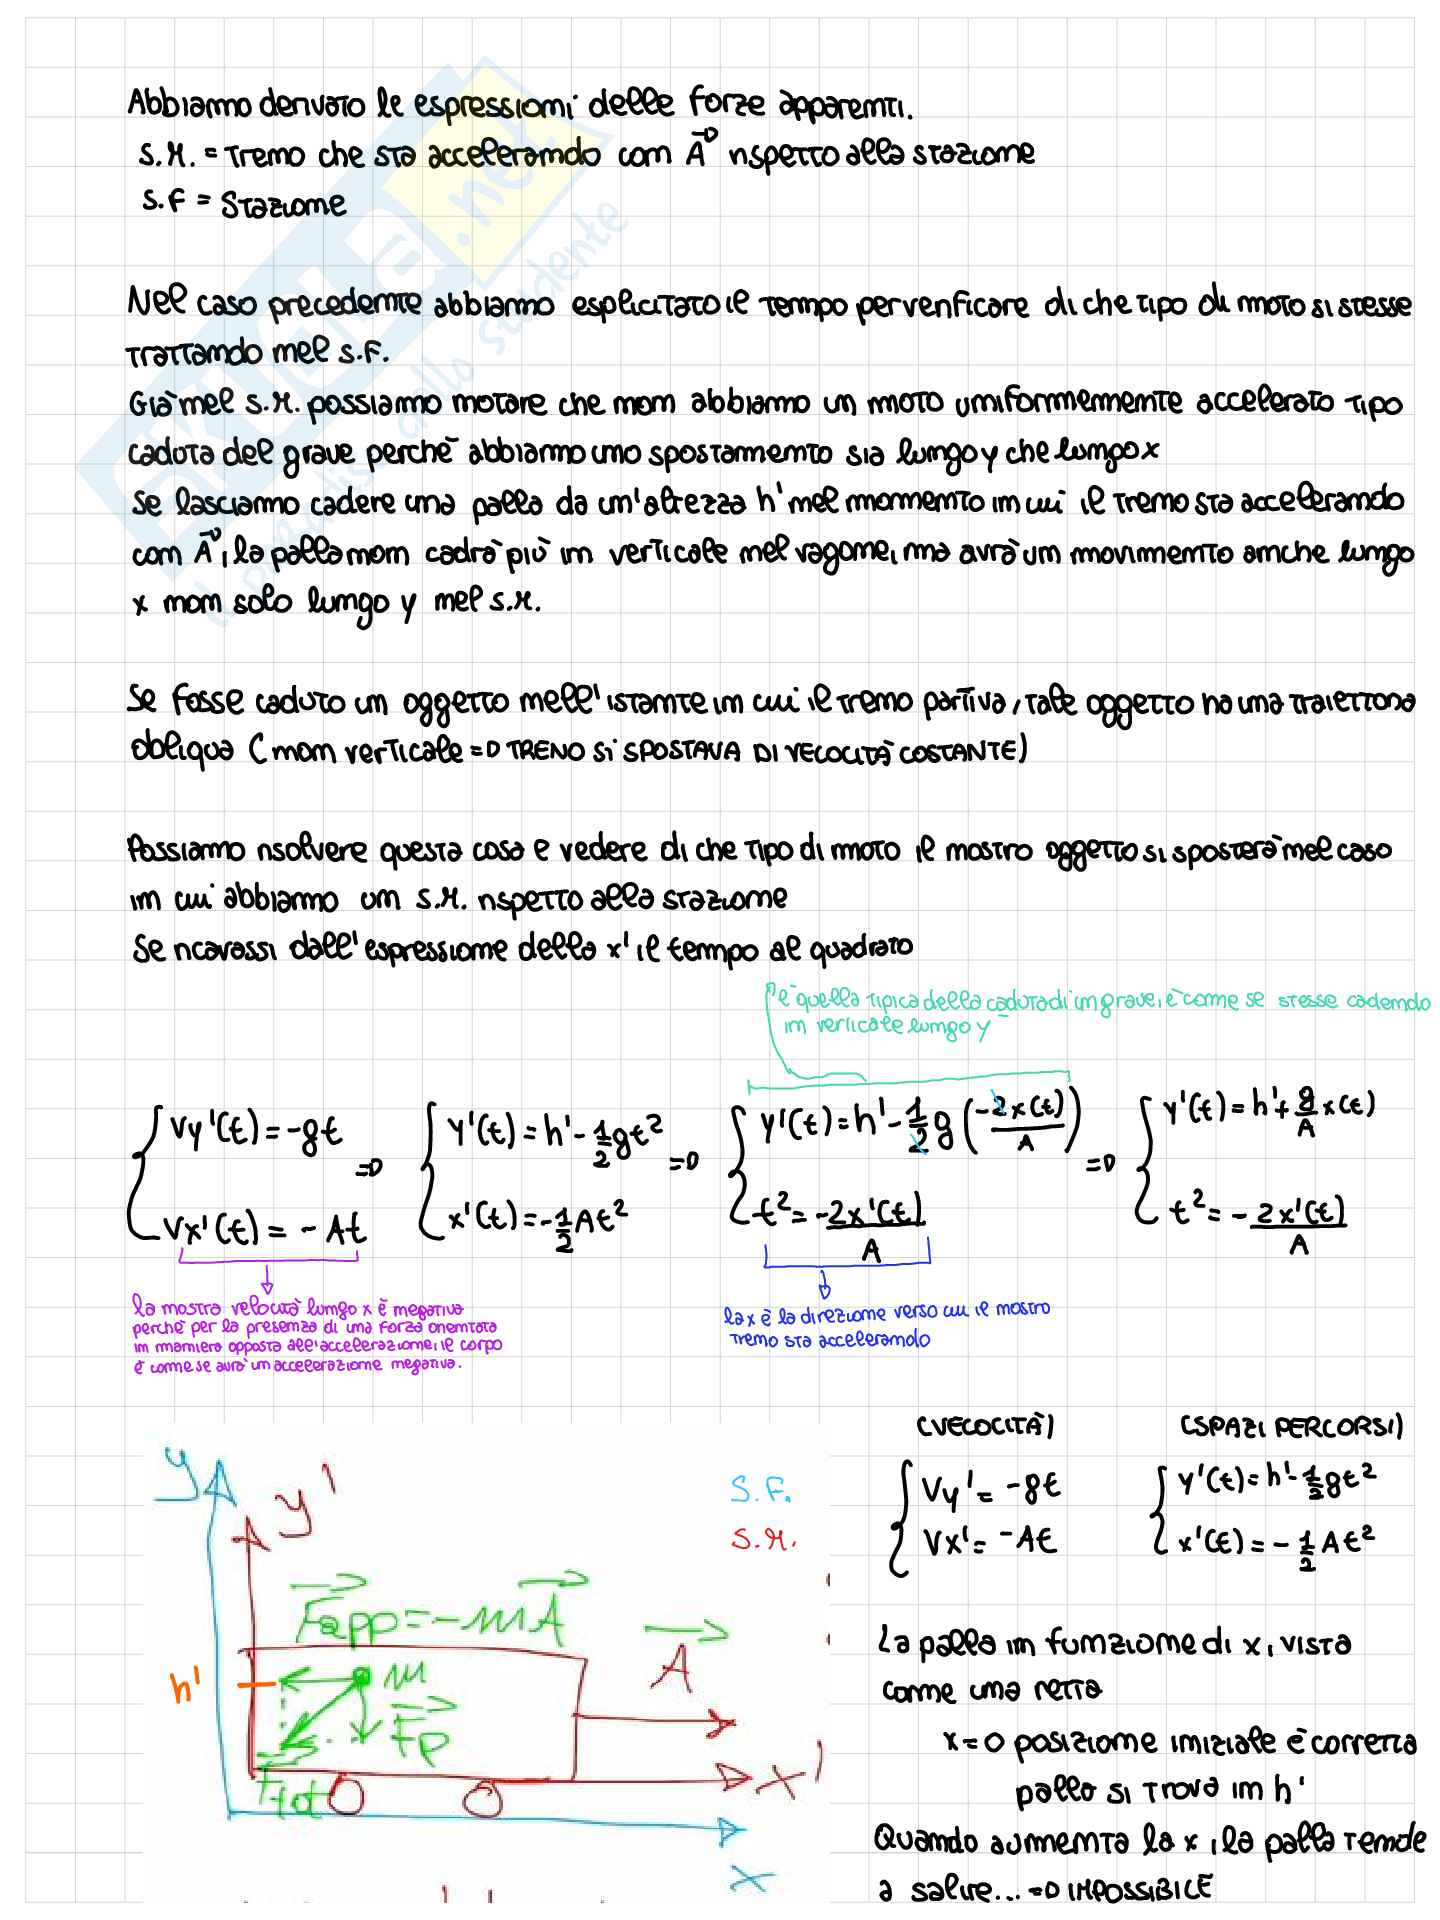 Abbiamo derivato le espressioni delle forze apparenti.
S.M. = Treno che sta accelerando com A⃗ rispetto alla stazione
S.F = Stazione
Nel caso precedente abbiamo esplicitato il tempo per verificare di che tipo di moto si stesse
trattando nel S.F.
Già nel S.M. possiamo notare che non abbiamo un moto uniformemente accelerato tipo
caduta del grave perchè abbiamo uno spostamento sia lungo y che lungo x
Se lasciamo cadere una palla da un'altezza h' nel momento in cui il treno sta accelerando
con A⃗, la palla non cadrà più in verticale nel vagone, ma avrà un movimento anche lungo
x non solo lungo y nel S.M.
Se fosse caduto un oggetto nell'istante in cui il treno partiva, tale oggetto ha una traiettoria
obliqua (non verticale => TRENO SI SPOSTAVA DI VELOCITÀ COSTANTE)
Possiamo risolvere questa cosa e vedere di che tipo di moto il nostro oggetto si sposterà nel caso
in cui abbiamo un S.M. rispetto alla stazione
Se ricavassi dall'espressione della x' il tempo al quadrato
è quella tipica della caduta di un grave, è come se stesse cadendo
in verticale lungo y
{ Vy'(t) = -gt => { y'(t) = h' - 1/2 gt² => { y'(t) = h' - 1/2 g (-2x(t)/A) => { y'(t) = h' + g/A x(t)
Vx'(t) = - At x'(t) = -1/2 At² t² = -2x'(t)/A t² = - 2x'(t)/A
la nostra velocità lungo x è negativa
perchè per la presenza di una forza orientata
in maniera opposta all'accelerazione, il corpo
è come se avrà un accelerazione negativa.
la x è la direzione verso cui il nostro
treno sta accelerando
(VELOCITÀ) (SPAZI PERCORSI)
{ Vy' = -gt { y'(t) = h' - 1/2 gt²
Vx' = -At x'(t) = - 1/2 At²
y
y'
S.F.
S.M.
F⃗app = -mA⃗
A⃗
h'
m
F⃗p
F⃗tot
x'
x
La palla in funzione di x, vista
come una retta
x=0 posizione iniziale è corretta
palla si trova in h'
Quando aumenta la x, la palla tende
a salire... => IMPOSSIBILE
SKUOLA.net
il paradiso dello studente